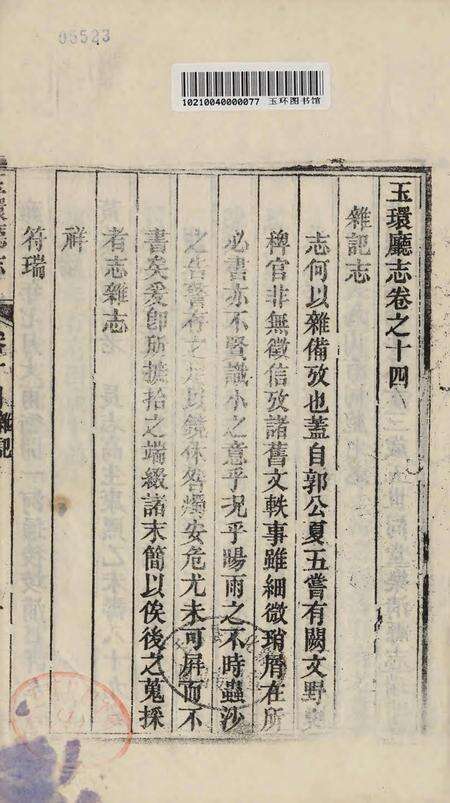 06523
10210040000077 玉环图书馆
玉環廳志卷之十四
雜記志
志何以雜備攷也蓋自郭公夏五嘗有闕文野史
稗官非無徵信攷諸舊文軼事雖細微瑣屑在所
必書亦不賢識小之意乎况乎暘雨之不時蟲沙
之告警存之足以鏡休咎燭安危尤未可屏而不
書矣爰卽所摭拾之端綴諸末簡以俟後之蒐採
者志雜志
祥
符瑞
玉環廳志
雜記